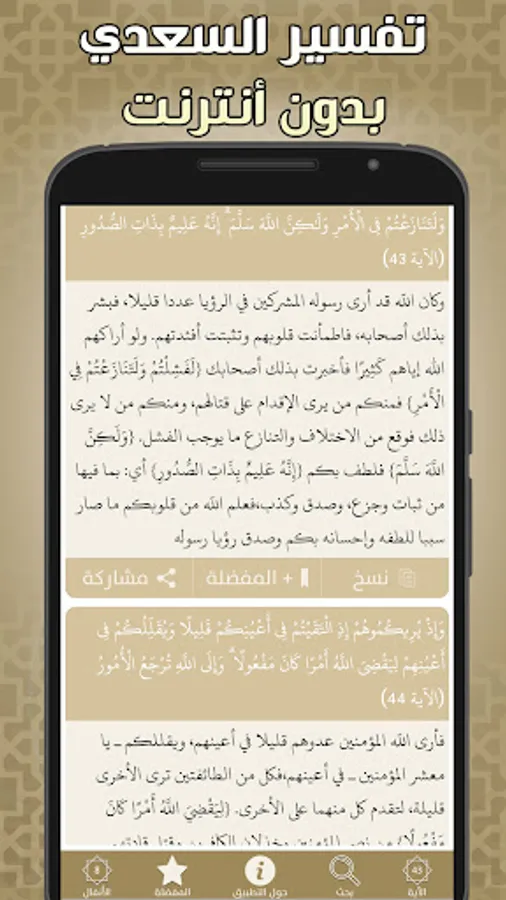 تفسير السعدي
بدون أنترنت
وَلَتَنَازَعْتُمْ فِي الْأَمْرِ وَلَٰكِنَّ اللَّهَ سَلَّمَ ۗ إِنَّهُ عَلِيمٌ بِذَاتِ الصُّدُورِ
(الآية 43)
وكان الله قد أرى رسوله المشركين في الرؤيا عددا قليلا، فبشر
بذلك أصحابه، فاطمأنت قلوبهم وتثبتت أفئدتهم. ولو أراكهم
الله إياهم كَثِيرًا فأخبرت بذلك أصحابك {لَفَشِلْتُمْ وَلَتَنَازَعْتُمْ فِي
الْأَمْرِ} فمنكم من يرى الإقدام على قتالهم، ومنكم من لا يرى
ذلك فوقع من الاختلاف والتنازع ما يوجب الفشل. {وَلَكِنَّ
اللَّهَ سَلَّمَ} فلطف بكم {إِنَّهُ عَلِيمٌ بِذَاتِ الصُّدُورِ} أي: بما فيها
من ثبات وجزع، وصدق وكذب،فعلم الله من قلوبكم ما صار
سببا للطفه وإحسانه بكم وصدق رؤيا رسوله
نسخ
+ المفضلة
مشاركة
وَإِذْ يُرِيكُمُوهُمْ إِذِ الْتَقَيْتُمْ فِي أَعْيُنِكُمْ قَلِيلًا وَيُقَلِّلُكُمْ فِي
أَعْيُنِهِمْ لِيَقْضِيَ اللَّهُ أَمْرًا كَانَ مَفْعُولًا ۗ وَإِلَى اللَّهِ تُرْجَعُ الْأُمُورُ
(الآية 44)
فأرى الله المؤمنين عدوهم قليلا في أعينهم، ويقللكم ـ يا
معشر المؤمنين ـ في أعينهم،فكل من الطائفتين ترى الأخرى
قليلة، لتقدم كل منهما على الأخرى. {لِيَقْضِيَ اللَّهُ أَمْرًا كَانَ
مَفْعُولًا} من نصر المؤمنين وخذلان الكافرين وقتل قادتهم
43
الآية
بحث
حول التطبيق
المفضلة
8
الأنفال